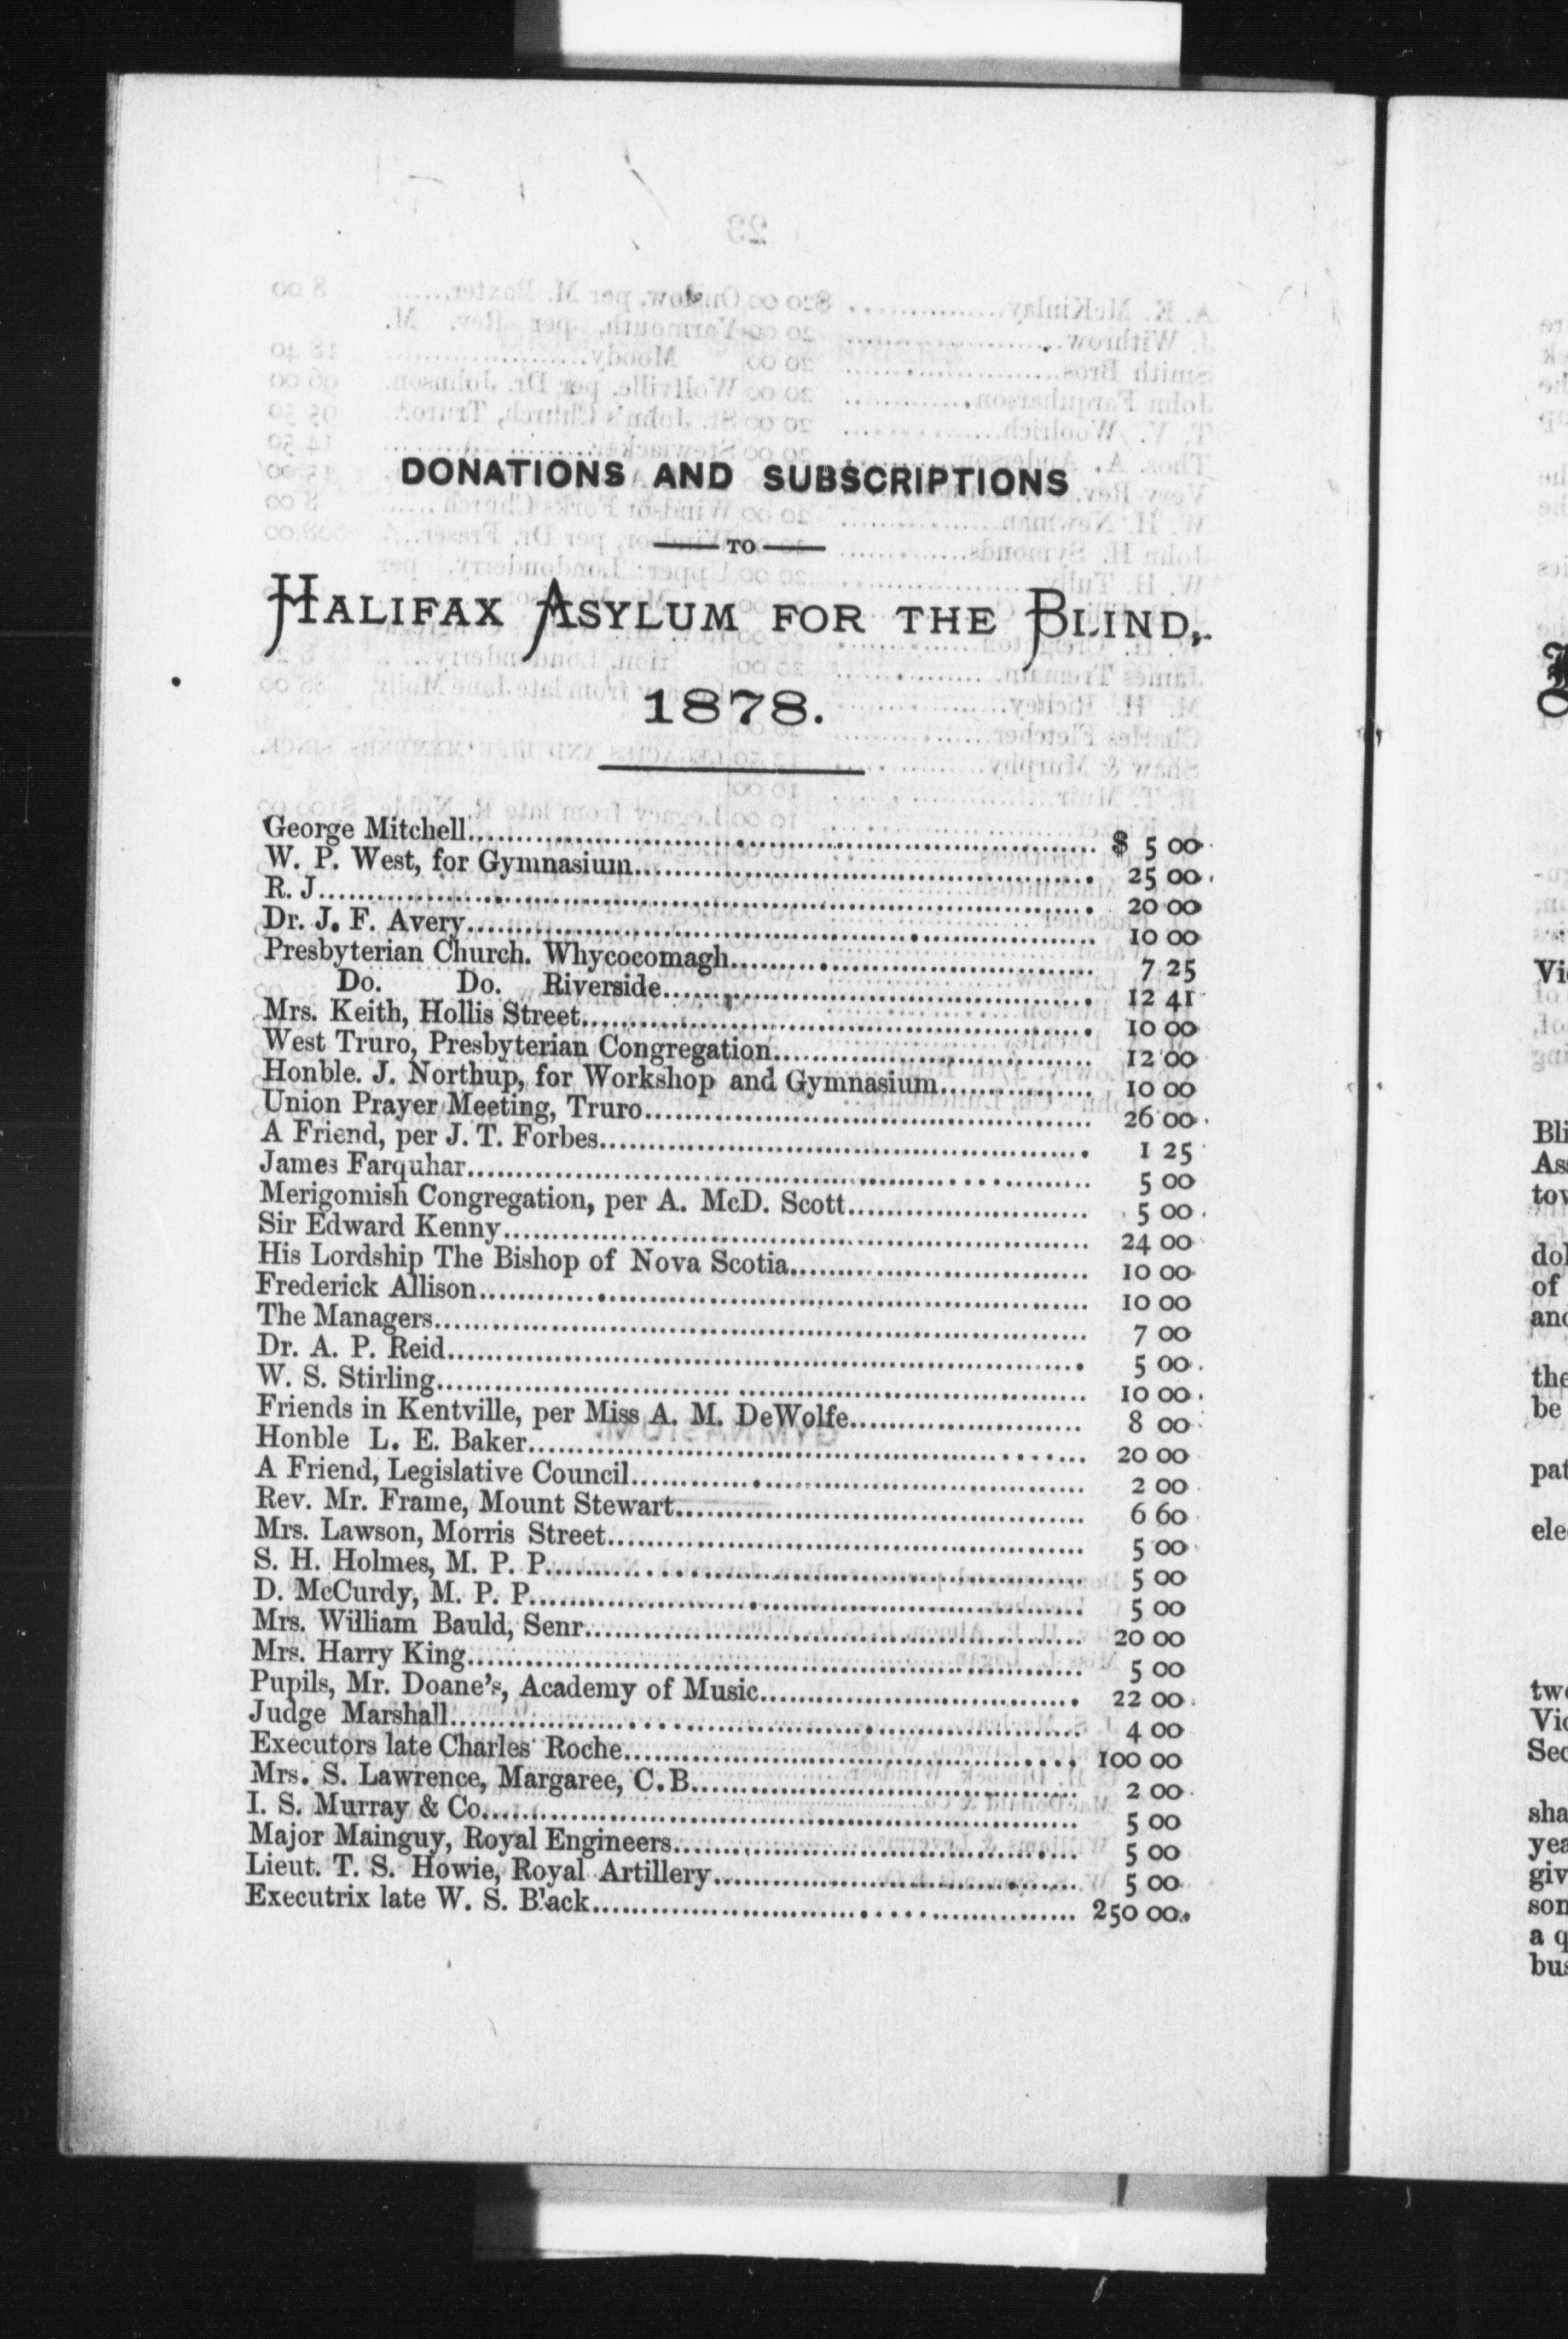 DONATIONS AND SUBSCRIPTIONS
TO
HALIFAX ASYLUM FOR THE BLIND,
1878.
George Mitchell $ 5 00
W. P. West, for Gymnasium 25 00
R. J. 20 00
Dr. J. F. Avery 10 00
Presbyterian Church. Whycocomagh 7 25
Do. Do. Riverside 12 41
Mrs. Keith, Hollis Street 10 00
West Truro, Presbyterian Congregation 12 00
Honble. J. Northup, for Workshop and Gymnasium 10 00
Union Prayer Meeting, Truro 26 00
A Friend, per J. T. Forbes 1 25
James Farquhar 5 00
Merigomish Congregation, per A. McD. Scott 5 00
Sir Edward Kenny 24 00
His Lordship The Bishop of Nova Scotia 10 00
Frederick Allison 10 00
The Managers 7 00
Dr. A. P. Reid 5 00
W. S. Stirling 10 00
Friends in Kentville, per Miss A. M. DeWolfe 8 00
Honble L. E. Baker 20 00
A Friend, Legislative Council 2 00
Rev. Mr. Frame, Mount Stewart 6 60
Mrs. Lawson, Morris Street 5 00
S. H. Holmes, M. P. P. 5 00
D. McCurdy, M. P. P. 5 00
Mrs. William Bauld, Senr. 20 00
Mrs. Harry King 5 00
Pupils, Mr. Doane's, Academy of Music 22 00
Judge Marshall 4 00
Executors late Charles Roche 100 00
Mrs. S. Lawrence, Margaree, C. B. 2 00
I. S. Murray & Co. 5 00
Major Mainguy, Royal Engineers 5 00
Lieut. T. S. Howie, Royal Artillery 5 00
Executrix late W. S. Black 250 00